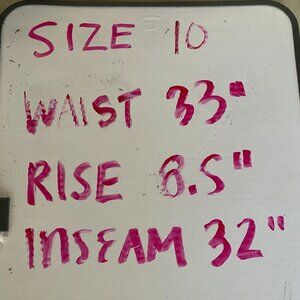 SIZE 10
WAIST 33"
RISE 8.5"
INSEAM 32"